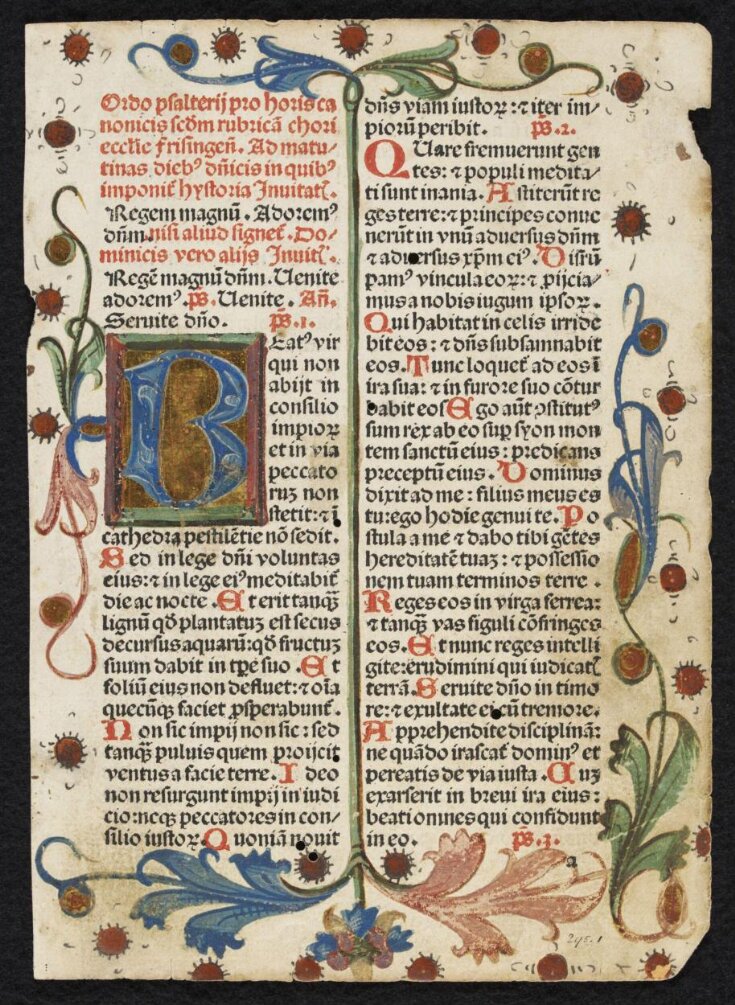 Ordo psalterij pro horis ca
nonicis scd̄m rubricā chori
ecclie frisingeñ. Ad matu⸗
tinas dieb⁹ dñicis in quib⁹
imponit̄ hystoria Inuitat̄.
Regem magnū. Adorem⁹
dñm. nisi aliud signet̄. Do⸗
minicis vero alijs Inuit̄.
Regē magnū dñm. Uenite
adorem⁹. ps. Uenite. Añ.
Seruite dño. ps. 1.
BEat⁹ vir
qui non
abijt in
consilio
impioꝝ
et in via
peccato
rum non
stetit: ⁊ ī
cathedra pestilētie nō sedit.
Sed in lege dñi voluntas
eius: ⁊ in lege ei⁹ meditabit̄
die ac nocte. Et erit tanqꝫ
lignū qd̄ plantatuꝫ est secus
decursus aquarū: qd̄ fructuꝫ
suum dabit in tp̄e suo. Et
foliū eius non defluet: ⁊ oīa
quecūqꝫ faciet ꝓsperabunt̄.
Non sic impij non sic: sed
tanqꝫ puluis quem proijcit
ventus a facie terre. Ideo
non resurgunt impij in iudi
cio: neqꝫ peccatores in con⸗
silio iustoꝝ. Quoniā nouit
dñs viam iustoꝝ: ⁊ iter im⸗
piorū peribit. ps. 2.
QUare fremuerunt gen
tes: ⁊ populi medita⸗
ti sunt inania. Astiterūt re
ges terre: ⁊ principes conue
nerūt in vnū aduersus dñm
⁊ aduersus xp̄m ei⁹. Disrū
pam⁹ vincula eoꝝ: ⁊ ꝓijcia⸗
mus a nobis iugum ipsoꝝ.
Qui habitat in celis irride
bit eos: ⁊ dñs subsannabit
eos. Tunc loquet̄ ad eos ī
ira sua: ⁊ in furore suo cōtur
babit eos Ego aūt ꝯstitut⁹
sum rex ab eo suꝑ syon mon
tem sanctū eius: predicans
preceptū eius. Dominus
dixit ad me: filius meus es
tu: ego hodie genui te. Po
stula a me ⁊ dabo tibi gētes
hereditatē tuaꝫ: ⁊ possessio
nem tuam terminos terre.
Reges eos in virga ferrea:
⁊ tanqꝫ vas figuli cōfringes
eos. Et nunc reges intelli
gite: erudimini qui iudicat̄
terrā. Seruite dño in timo
re: ⁊ exultate ei cū tremore.
Apprehendite disciplinā:
ne quādo irascat̄ domin⁹ et
pereatis de via iusta. Cuꝫ
exarserit in breui ira eius:
beati omnes qui confidunt
in eo. ps. 3.
a
295.1